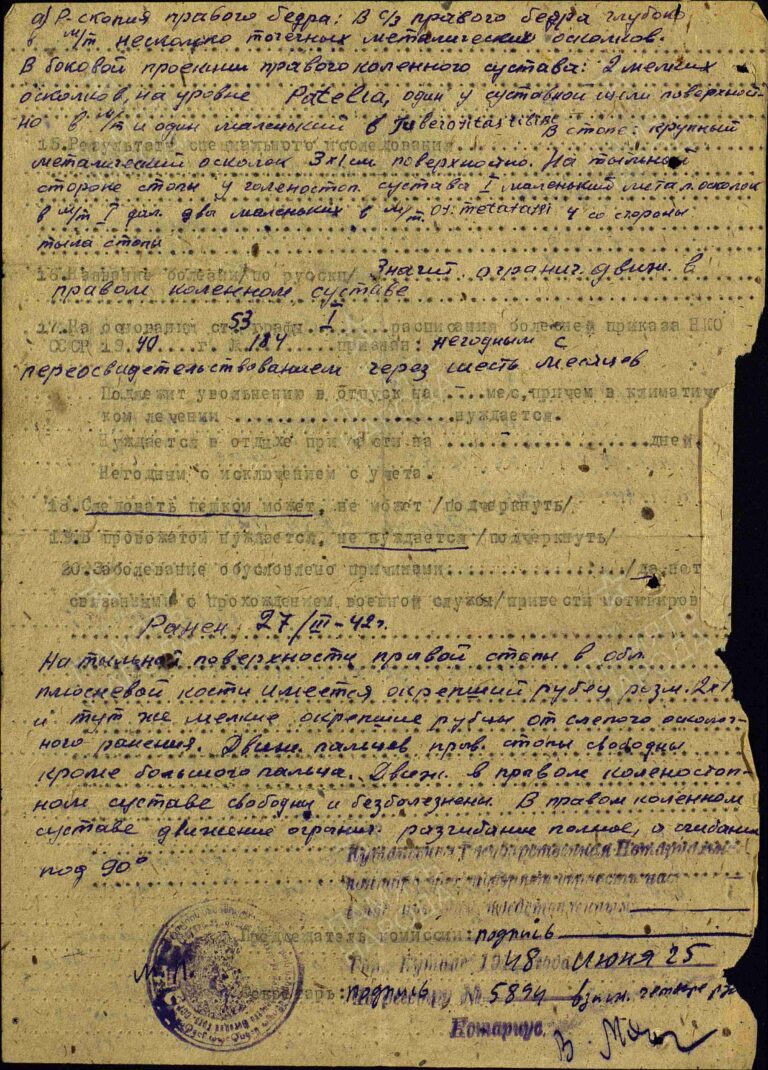 а) R-скопия правого бедра: В с/з правого бедра глубоко
в м/т несколько точечных металических осколков.
В боковой проекции правого коленного сустава: 2 мелких
осколков, на уровне Patella, один у суставной щели поверхност-
но в м/т и один маленький в Tuberositas tibiae В стопе: крупный
15.Результаты специального исследования
металический осколок 3х1см поверхностно. На тыльной
стороне стопы у голеностоп. сустава I маленький метал. осколок
в м/т I два маленьких в м/т. 4 со стороны
тыла стопы
16.Название болезни/по русски/ Значит. огранич. движ. в
правом коленном суставе
17.На основании ст. 53 графы I расписания болезней приказа НКО
СССР 1940 г. № 184 признан: негодным с
переосвидетельствованием через шесть месяцев
Подлежит увольнению в отпуск на мес. причем в климатиче
ком лечении нуждается.
Нуждается в отдыхе при части на дней.
Негодным с исключением с учета.
18.Следовать пешком может, не может /подчеркнуть/
19.В провожатом нуждается, не нуждается /подчеркнуть/
20.Заболевание обусловлено причинами: /да,нет
связанными с прохождением военной службы/привести мотивиров
Ранен 27/III-42г.
На тыльной поверхности правой стопы в обл.
плюсневой кости имеется окрепший рубец разм. 2х1
и тут же мелкие окрепшие рубцы от слепого осколоч-
ного ранения. Движ. пальцев прав. стопы свободны
кроме большого пальца. Движ. в правом коленостоп-
ном суставе свободны и безболезнены. В правом коленном
суставе движение огранич. разгибание полное, а сгибание
под 90°
Кутаисская Государственная Нотариальная
Председатель комиссии: подпись
Гор. Кутаис 1948 года июня 25
М.П.
Секретарь: подпись
По реестру № 5894 взыск. четыре р
Нотариус